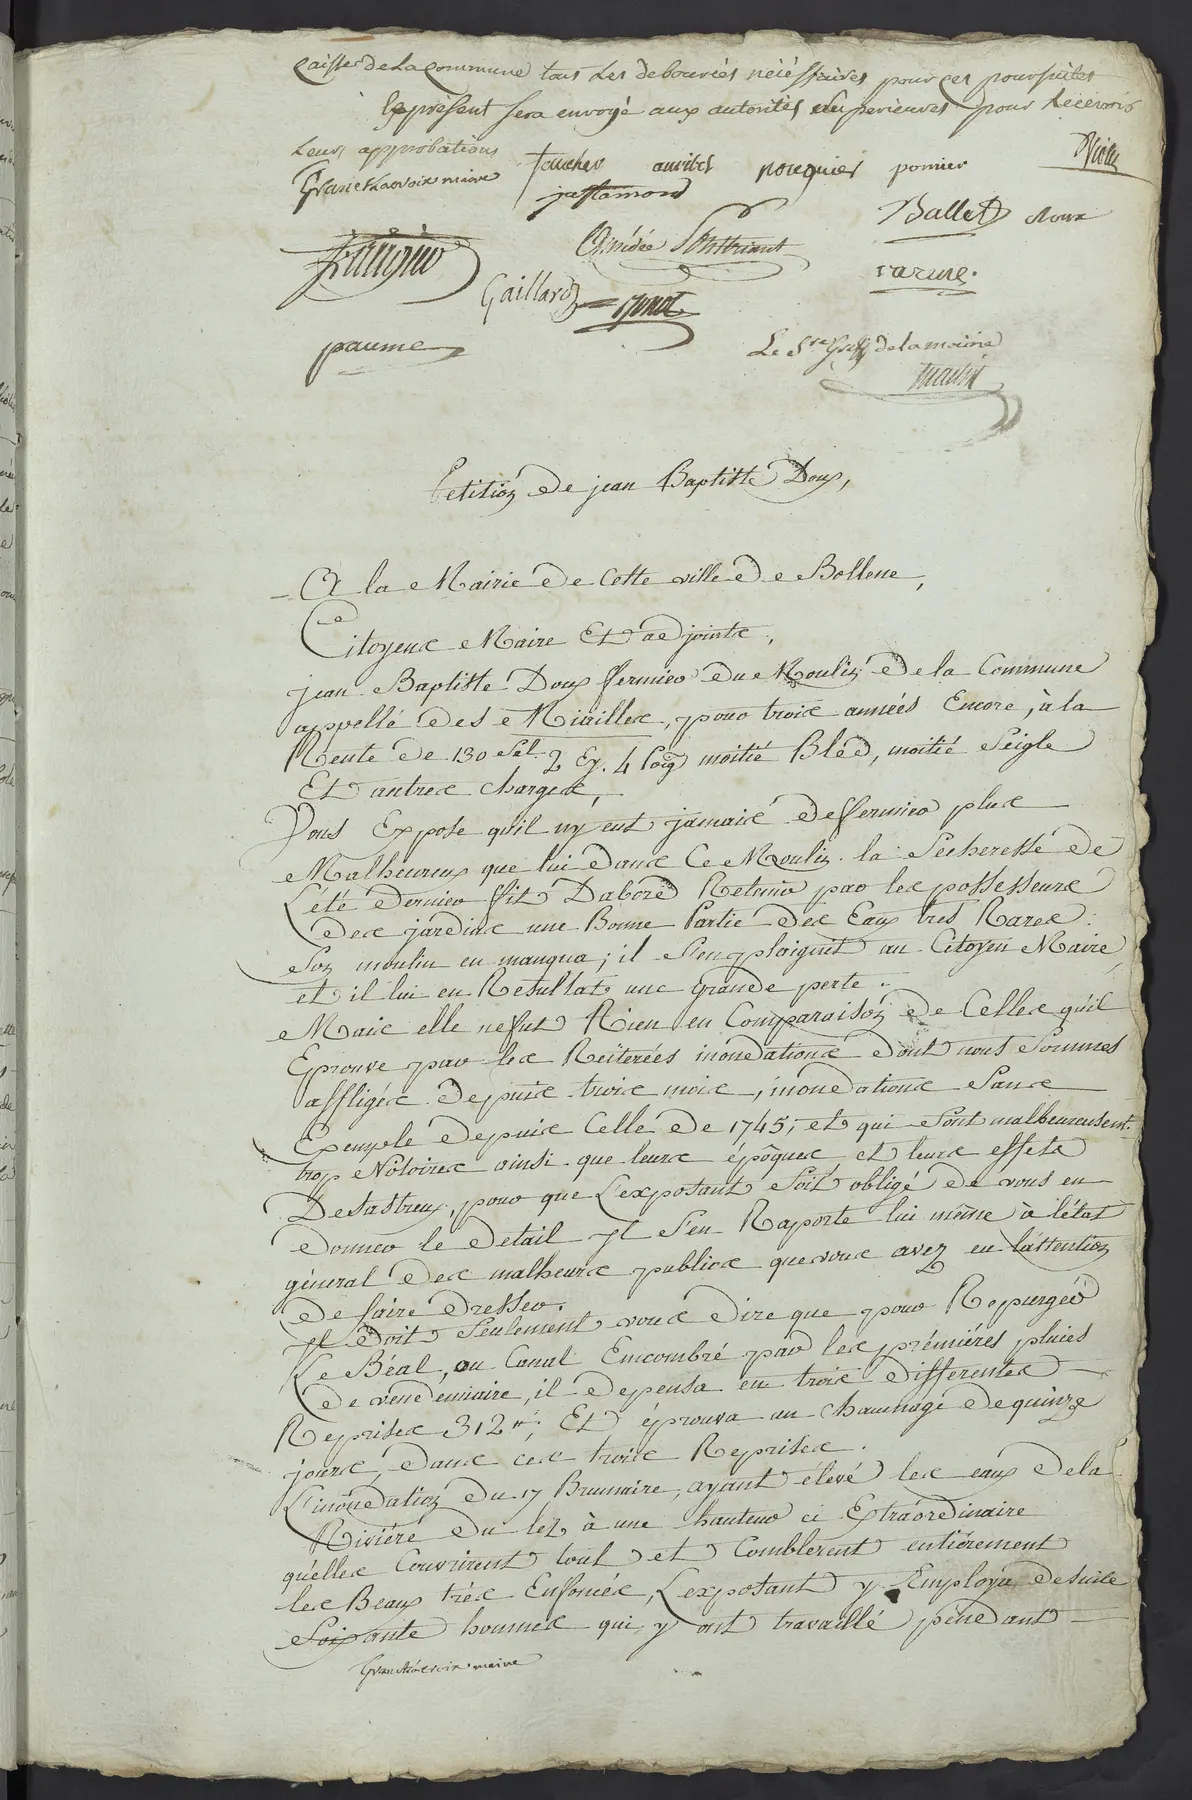 Caisse de La Commune tous Les debourcés nécéssaires pour ces poursuites
Le présent sera envoyé aux autorités supérieures pour Recevoir
Leurs approbations
Granet Lacroix maire faucher auribel pouquier pomier
jastamond
Ballet Doux
Amédée
Gaillard
carme.
paume
Le S.re Greff de la mairie
Petition De jean Baptiste Doux,
A la Mairie De Cette ville De Bollene,
Citoyens Maire Et adjoints,
jean Baptiste Doux fermier Du Moulin De la Commune
appellé Des Mirailles, pour trois années Encore, à la
Rente De 130 Sal. 2 Ey. 4 Poig moitié Bléd, moitié Seigle
Et autres charges,
Vous Expose qu'il n'y eut jamais De fermier plus
Malheureux que lui Dans Ce Moulin. la Sécheresse De
L'été Dernier fit D'abord Retenir par les possesseurs
Des jardins une Bonne Partie Des Eaux très Rares :
Son moulin en manqua ; il s'en plaignit au Citoyen Maire
et il lui en Resultat une grande perte.
Mais elle ne fut Rien en Comparaison De Celles qu'il
Eprouve par les Reiterées inondations Dont nous Sommes
affligés Depuis trois mois, inondations Sans
Exemple Depuis Celle De 1745, et qui Sont malheureusemt.
trop Notoires ainsi que leurs époques et leurs effets
Desastreux, pour que L'exposant Soit obligé De vous en
Donner le Detail Il S'en Raporte lui même à l'état
géneral Des malheurs publics que vous avez eu l'attention
De faire Dresser.
Il Doit Seulement vous Dire que pour Repurger
Le Béal, ou Canal Emcombré par les prémiéres pluies
De vendemiaire, il Depensa en trois Differentes
Reprises 312 tt; Et éprouva un chaumage De quinze
jours, Dans ces trois Reprises.
L'inondation Du 17 Brumaire, ayant élevé les eaux De la
Riviére Du lez à une hauteur ci Extraordinaire
qu'elles Couvrirent tout et Comblerent entiérement
les Beaux très Enfoncés, L'exposant y Employa De suite
Soixante hommes qui y ont travaillé pendant
Granet Lacroix maire